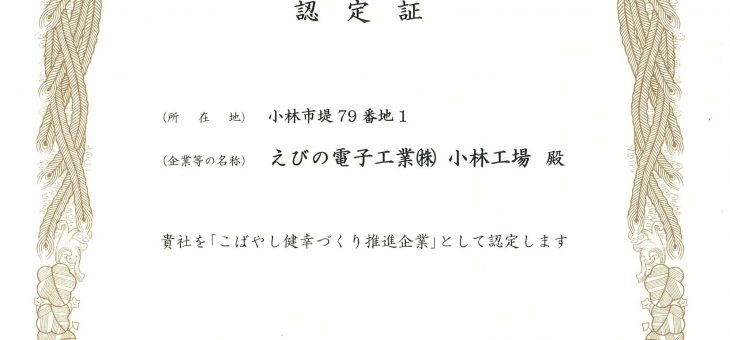 認定証
(所在地) 小林市堤79番地1
(企業等の名称) えびの電子工業㈱ 小林工場 殿
貴社を「こばやし健幸づくり推進企業」として認定します